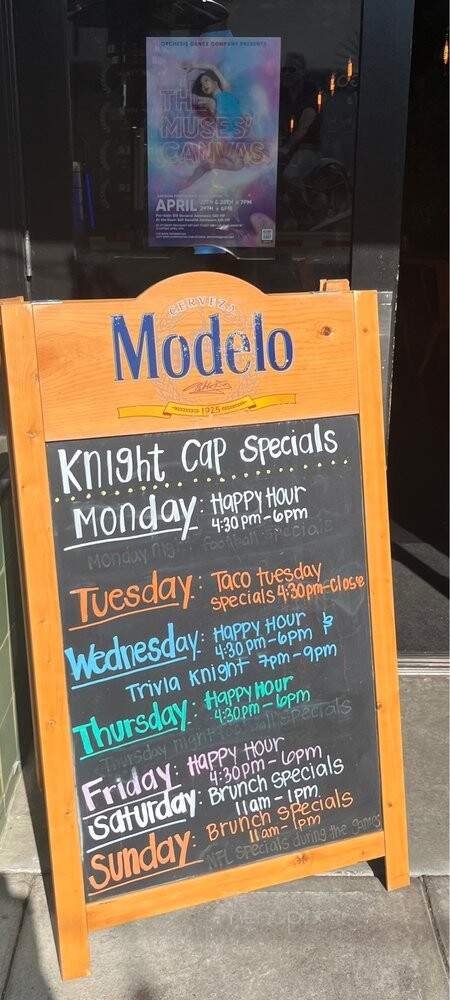 ORCHESIS DANCE COMPANY PRESENTS
THE
MUSES'
CANVAS
APRIL
CERVEZA
Modelo
1925
Knight Cap Specials
Monday: Happy Hour
4:30pm-6pm
Monday night football specials
Tuesday: Taco tuesday
specials 4:30pm-close
Wednesday: Happy Hour &
4:30pm-6pm
Trivia Knight 7pm-9pm
Thursday: Happy Hour
4:30pm-6pm
Thursday night football specials
Friday: Happy Hour
4:30pm-6pm
Saturday: Brunch specials
11am-1pm
Sunday: Brunch specials
11am-1pm
NFL specials during the games